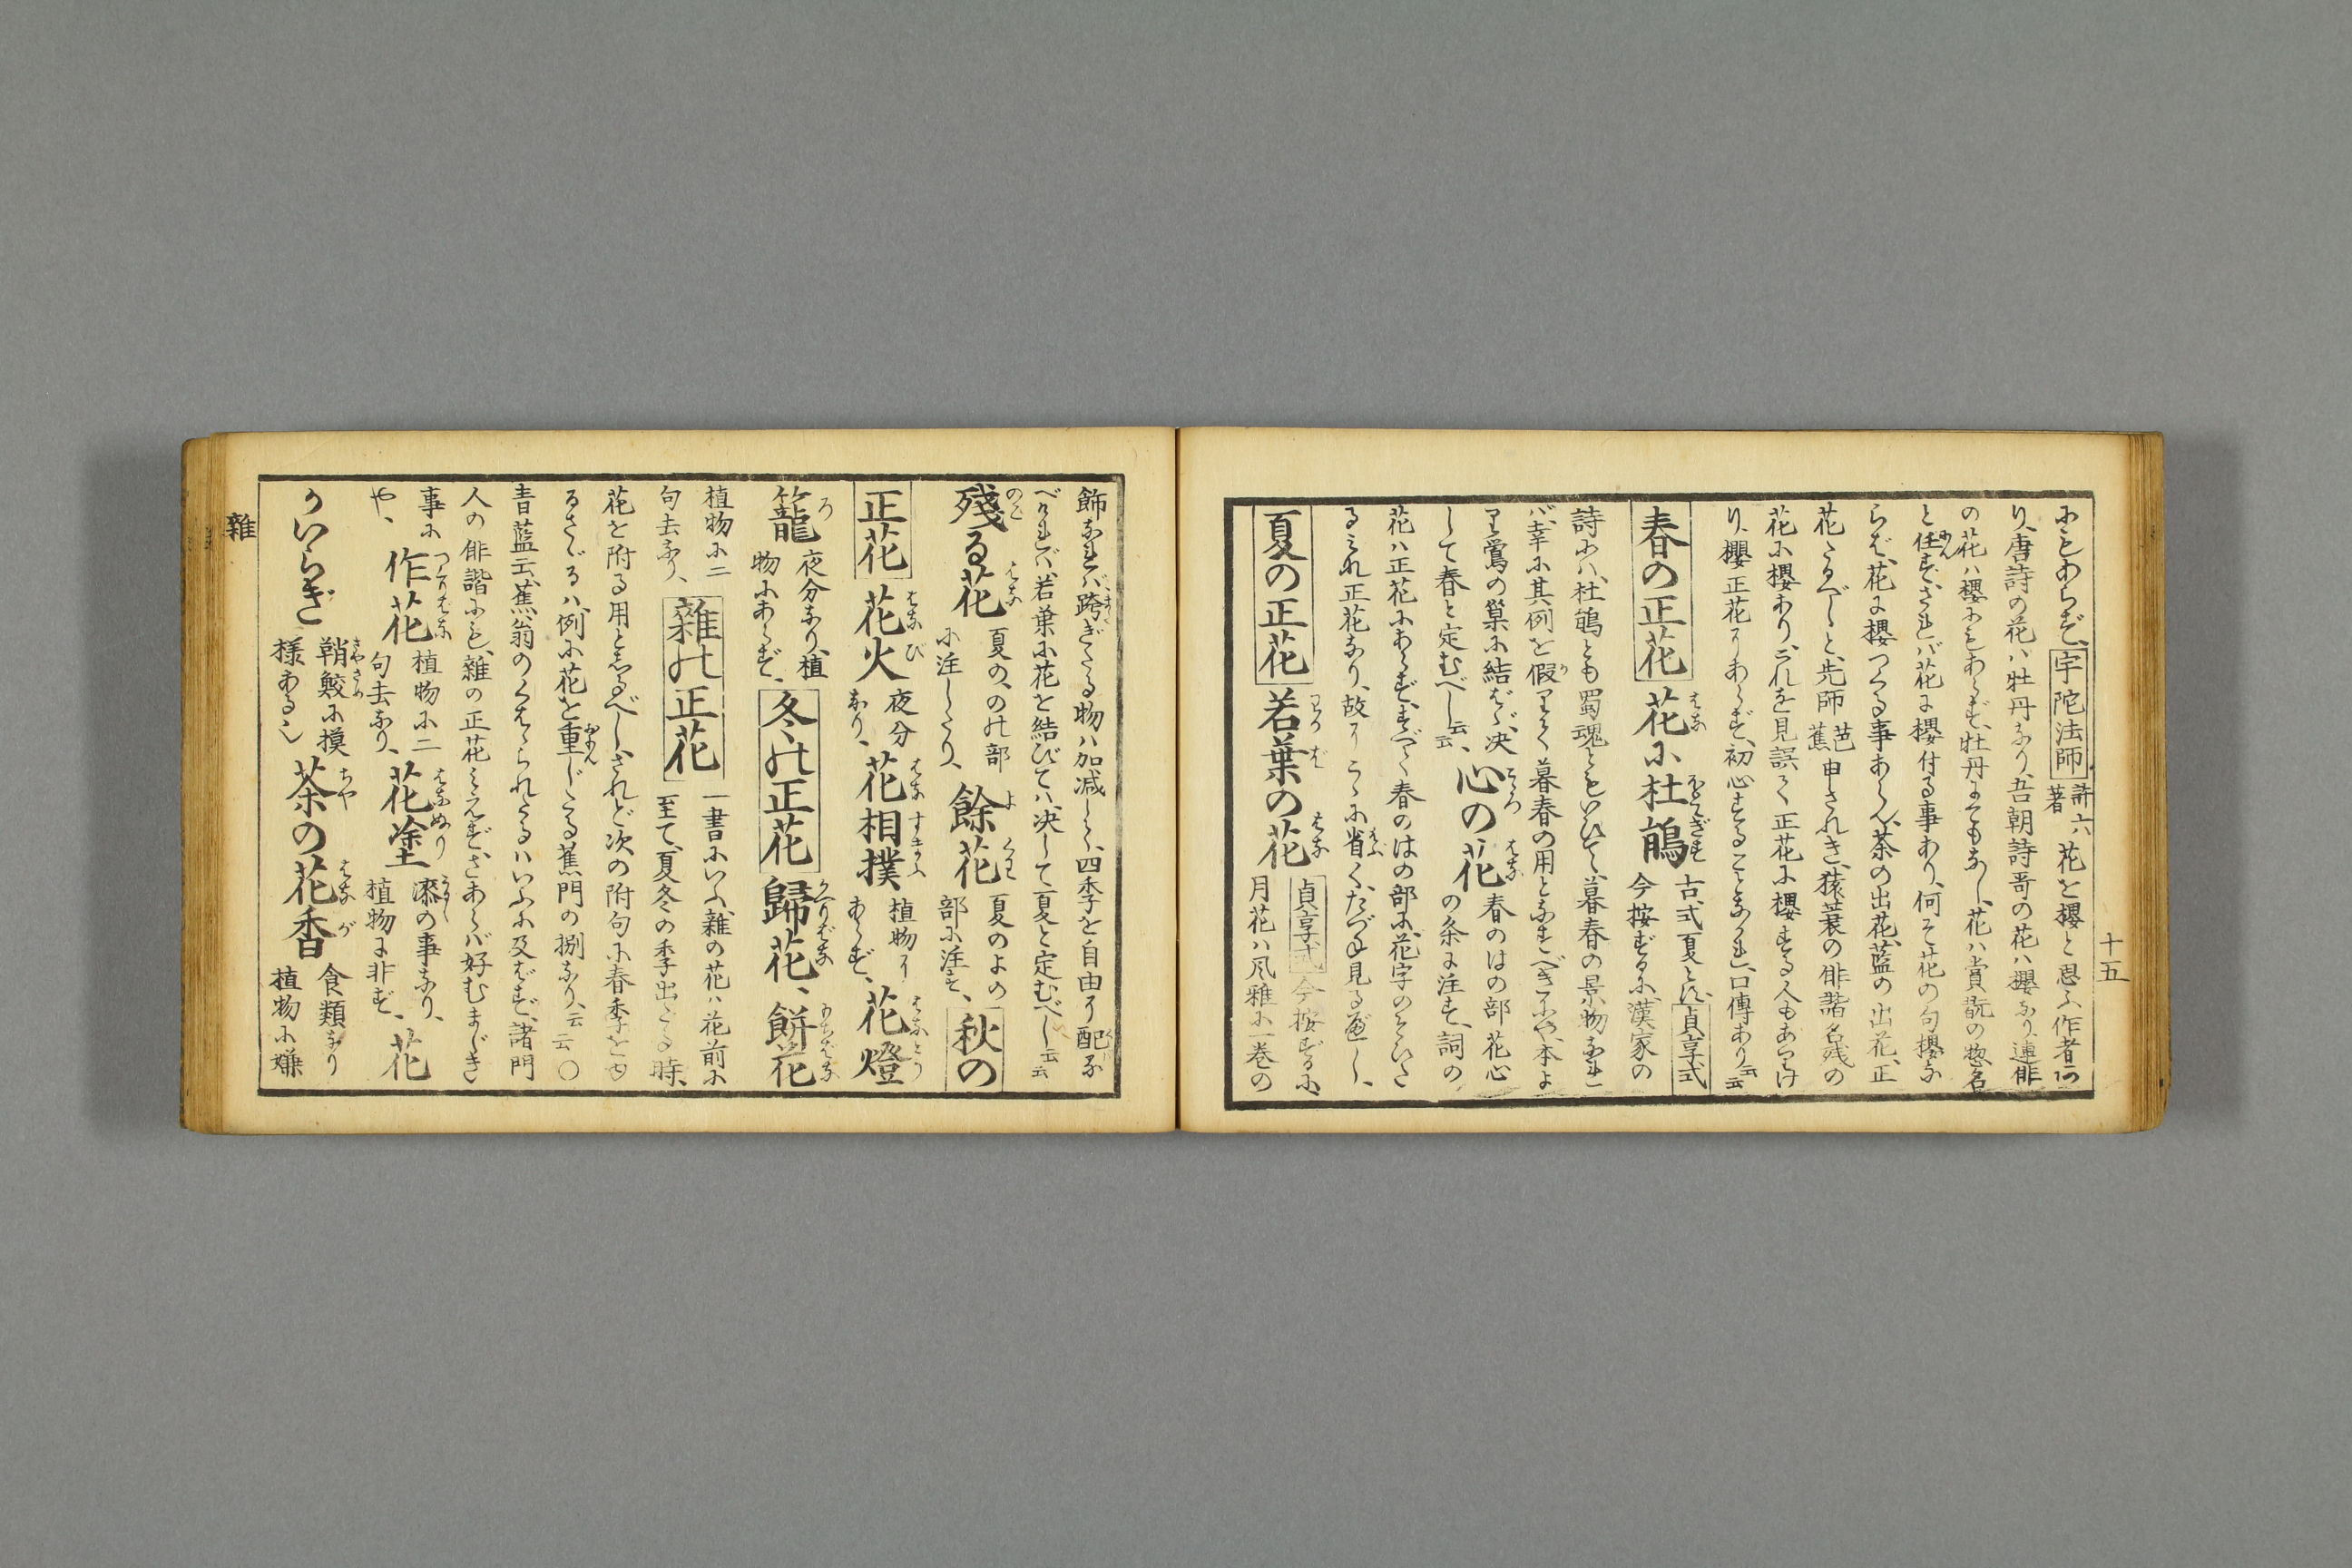 十五
にもあらず、宇陀法師許六著花を櫻と思ふ作者何
り、唐詩の花ハ牡丹なり、吾朝詩哥の花ハ櫻なり、連俳
の花ハ櫻にもあらず、牡丹にてもなし、花ハ賞翫の惣名
と任ず、されバ花に櫻付る事あり、何そ花の句櫻な
らば、花に櫻つくる事あらん、茶の出花、藍の出花、正
花たるべしと、先師芭蕉申されき、猿蓑の俳諧名残の
花に櫻あり、これを見誤て正花に櫻する人もあらけ
り、櫻正花にあらず、初心することなかれ、口傳あり云云
春の正花 花に杜鵑 古式夏とす、貞享式今按ずるに、漢家の
詩にハ、杜鵑とも蜀魂ともいひて、暮春の景物なれ
バ、幸に其例を假りて、暮春の用となすべきにや、本よ
り鶯の巣に結ばゞ、决して春と定むべし云云、心の花 春のはの部花心の条に注す、詞の
花ハ正花にあらず、すべて春のはの部に、花字のそひた
るみな正花なり、故にこゝに省く、たづね見るべし、
夏の正花 若葉の花 貞享式今按ずるに、月花ハ風雅に一巻の
飾なれバ、跨ぎたる物ハ加減して、四季を自由に配るな
べけれバ、若葉に花を結びてハ、决して夏と定むべし云云
殘る花 夏の、のの部に注したり、餘花 夏のよの部に注す、秋の
正花 花火 夜分なり、花相撲 植物にあらず、花燈
籠 夜分なり、植物にあらず、冬の正花 歸花、餅花
植物に二句去なり、雜の正花 一書にいふ、雜の花ハ花前に至て、夏冬の季出たる時、
花を附る用としるべし、されど次の附句に春季を出
るさゞるハ、例に花を重じたる蕉門の捌なり、云云○
青藍云、蕉翁のくはられたるハいふに及ばず、諸門
人の俳諧にも、雜の正花みえず、さあらバ好むまじき
事にや、作花 植物に二句去なり、花塗 漆の事なり、植物に非ず、花
かいらぎ 鞘鮫に摸様あるし 茶の花香 食類なり植物に嫌
雜